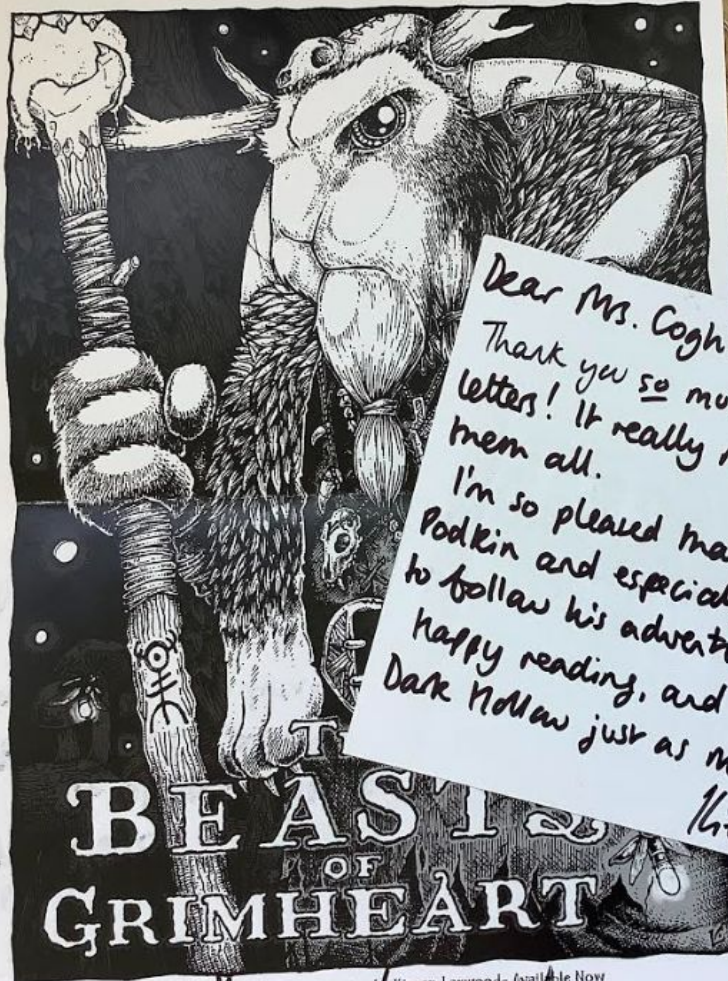 Dear Mrs. Cogh
Thank you so mu
letters! It really
them all.
I'm so pleased tha
Podkin and especial
to follow his advent
Happy reading, and
Dark Hollow just as m
TH
BEASTS
OF
GRIMHEART
Available Now